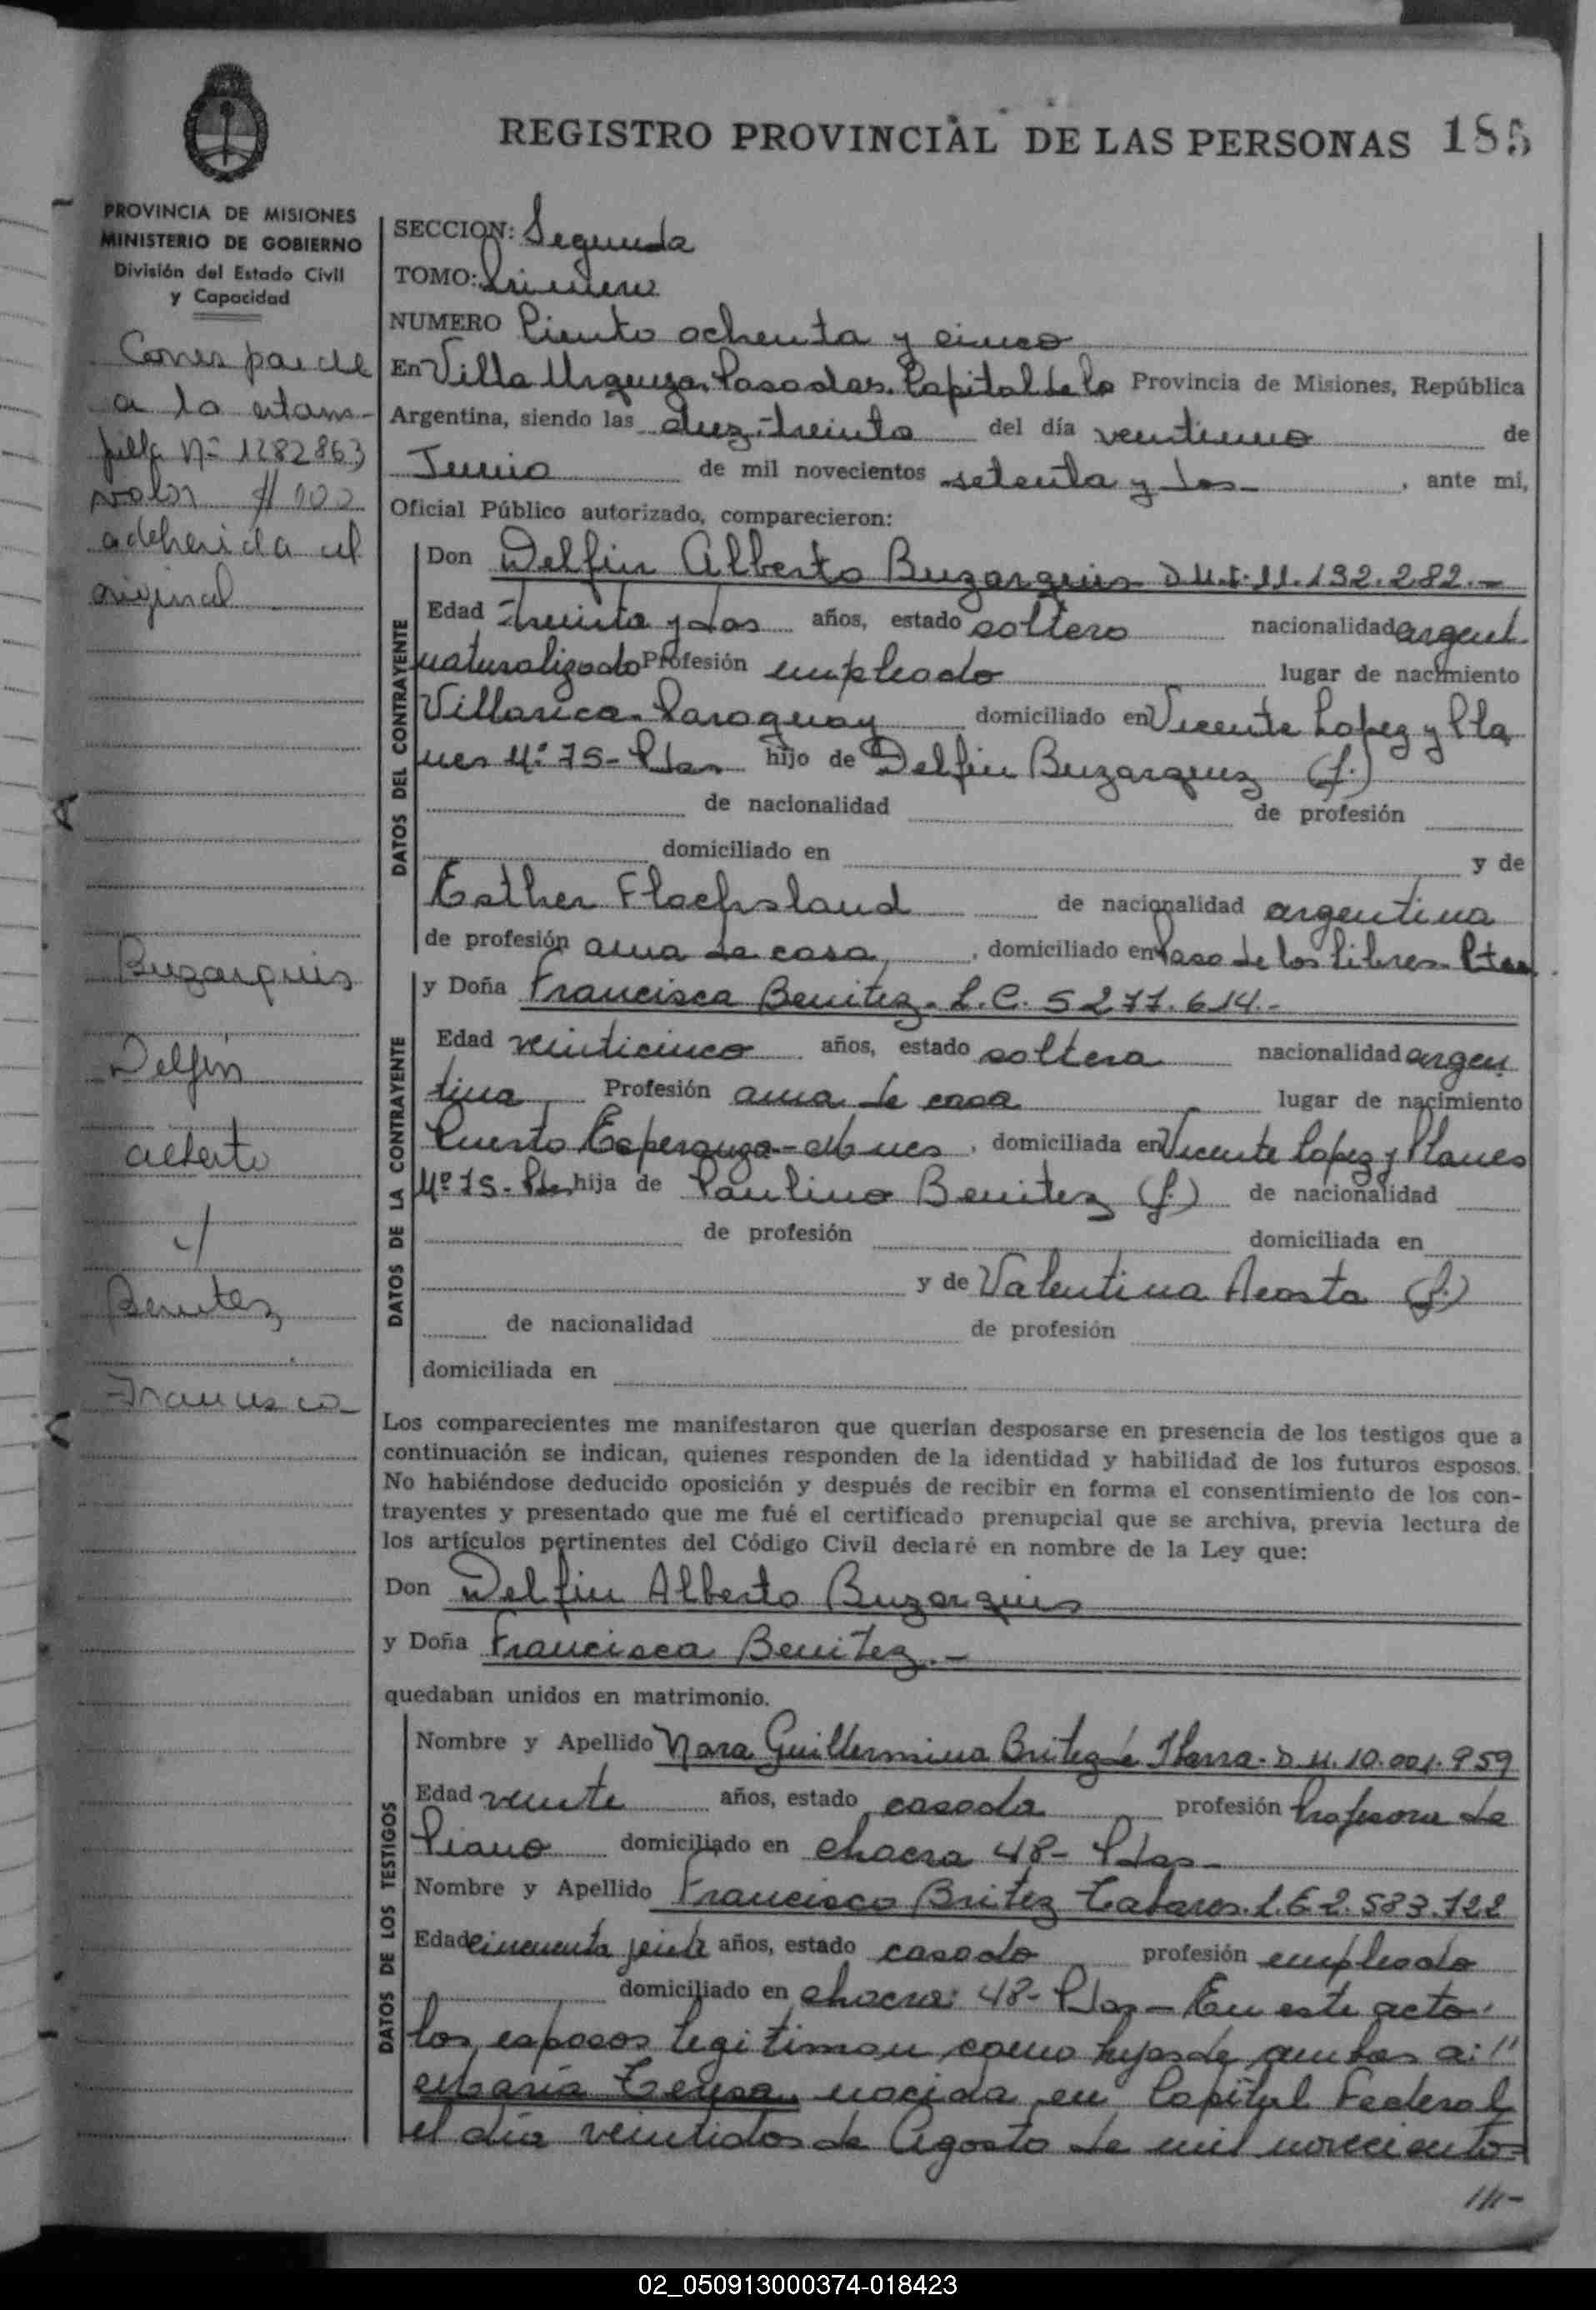 REGISTRO PROVINCIAL DE LAS PERSONAS 185
PROVINCIA DE MISIONES
MINISTERIO DE GOBIERNO
División del Estado Civil
y Capacidad
Corresponde
a la estam-
pilla Nº 1282863
valor $ 100
adherida al
original
Buzarquis
Delfin
alberto
y
Benitez
Francisca
SECCION: Segunda
TOMO: Primero
NUMERO Ciento ochenta y cinco
En Villa Urquiza, Posadas, Capital de la Provincia de Misiones, República
Argentina, siendo las diez treinta del día veintiuno de
Junio de mil novecientos setenta y dos , ante mi,
Oficial Público autorizado, comparecieron:
DATOS DEL CONTRAYENTE
Don Delfin Alberto Buzarquis D.U.I. 11.132.282.-
Edad treinta y dos años, estado soltero nacionalidad argent.
naturalizado Profesión empleado lugar de nacimiento
Villarica - Paraguay domiciliado en Vicente Lopez y Pla
nes Nº 75 - Pdas hijo de Delfin Buzarquis (f.)
de nacionalidad de profesión
domiciliado en y de
Esther Flachsland de nacionalidad argentina
de profesión ama de casa, , domiciliado en Paso de los Libres - Ctes.
DATOS DE LA CONTRAYENTE
y Doña Francisca Benitez - L.C. 5277.614.-
Edad veinticinco años, estado soltera nacionalidad argen
tina Profesión ama de casa lugar de nacimiento
Puerto Esperanza - Mnes , domiciliada en Vicente Lopez y Planes
Nº 75 - Pdas hija de Paulino Benitez (f.) de nacionalidad
de profesión domiciliada en
y de Valentina Acosta (f.)
de nacionalidad de profesión
domiciliada en
Los comparecientes me manifestaron que querían desposarse en presencia de los testigos que a
continuación se indican, quienes responden de la identidad y habilidad de los futuros esposos.
No habiéndose deducido oposición y después de recibir en forma el consentimiento de los con-
trayentes y presentado que me fué el certificado prenupcial que se archiva, previa lectura de
los artículos pertinentes del Código Civil declaré en nombre de la Ley que:
Don Delfin Alberto Buzarquis
y Doña Francisca Benitez.-
quedaban unidos en matrimonio.
DATOS DE LOS TESTIGOS
Nombre y Apellido Nora Guillermina Britez de Ibarra - D.U. 10.001.959
Edad veinte años, estado casada profesión Profesora de
Piano domiciliado en chacra 48 - Pdas -
Nombre y Apellido Francisco Britez L.E. 2.583.722
Edad cincuenta años, estado casado profesión empleado
domiciliado en chacra 48 - Pdas - En este acto
los esposos legitiman como hijos de ambos a:"
Maria Teresa, nacida en Capital Federal
el día veintidos de Agosto de mil novecientos
///-
02_050913000374-018423